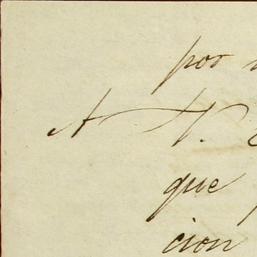 por
A V.
que
cion